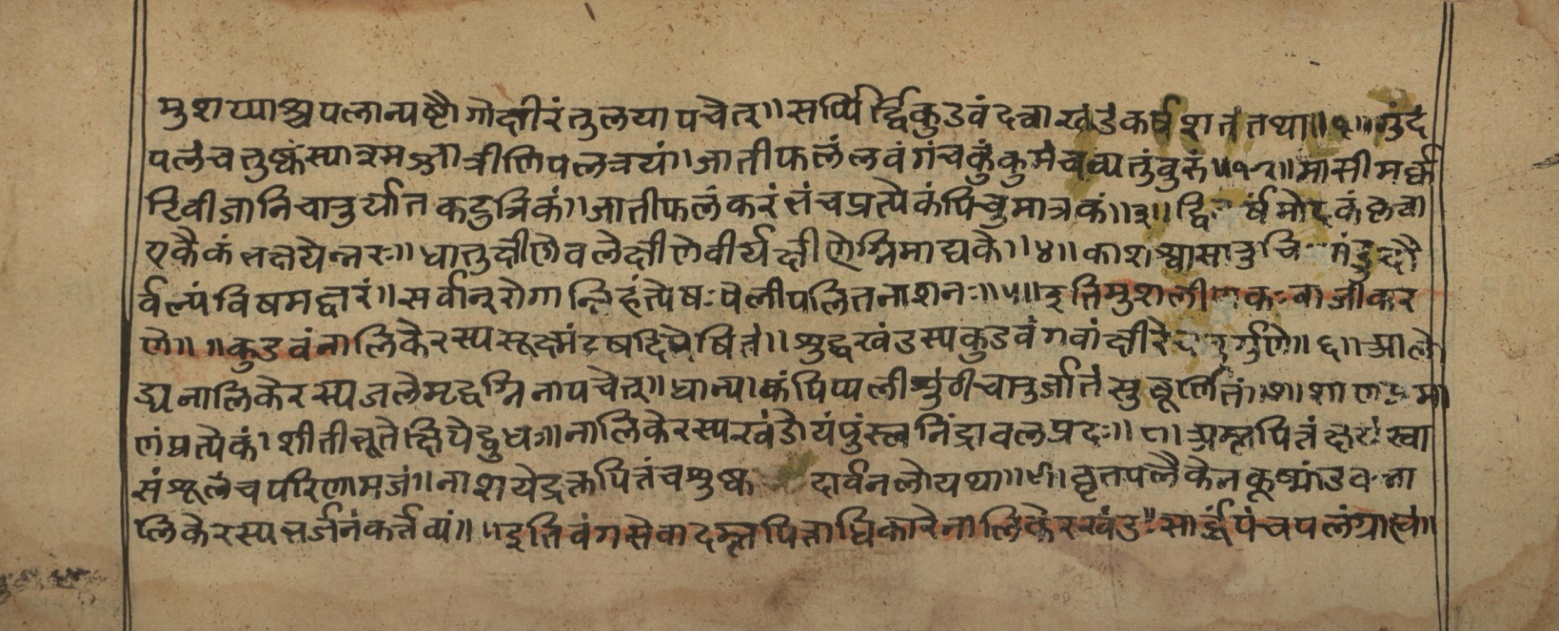 मुशय्याश्च पलान्यष्टौ गोक्षीरं तुलया पचेत्॥ सर्प्पिर्द्विकुडवं दत्वा खंडं कर्षशतं तथा॥१॥ गुंदं
पलं चतुष्कं स्यात्र मज्जा त्रीणि पलत्रयं। जातीफलं लवंगं च कुंकुमं चव्य तुंवुरुं॥२॥ मासी मर्क्क
टिवीजानि चातुर्यात कटुत्रिकं। जातीफलं करंतं च प्रत्येकं पिचुमात्रकं॥३॥ मोदकं कृत्वा
एकैकं भक्षयेन्नरः॥ धातुक्षीणे वलेक्षीणे वीर्यक्षीणेग्निमाद्यके॥४॥ काशश्वासा
र्वल्यं विषमज्वरं॥ सर्वान् रोगान्निहंत्येषः वलीपलितनाशनः॥५॥ इति मुशली वाजीकर
णे॥ ॥ कुडवं नालिकेरस्य सूक्ष्मं दृषदि पेषितं॥ शुद्धखंडस्य कुडवं गवां क्षीरे चतुर्गुणे॥६॥ आलो
ड्य नालिकेरस्य जले मृद्वग्निना पचेत्॥ धान्याकं पिप्पली शुंठी चातुर्जातं सुचूर्णितं॥ शाणप्रमा
णं प्रत्येकं। शीतीभूते क्षिपेद्बुधः॥ नालिकेरस्य खंडोयं पुंस्त्वनिंद्रावलप्रदः॥८॥ अम्लपितं क्षयं श्वा
सं शूलं च परिणामजं॥ नाशयेद्रक्तपितं च शुष्क दार्वनलो यथा॥९॥ घृतपलैकेन कूष्मांडवन्ना
लिकेरस्य भर्जनं कर्तव्यं॥ ॥ इति वंगसेवादम्लपिताधिकारे नालिकेरखंड॥ सार्द्धं पंचपलं ग्राह्यं॥